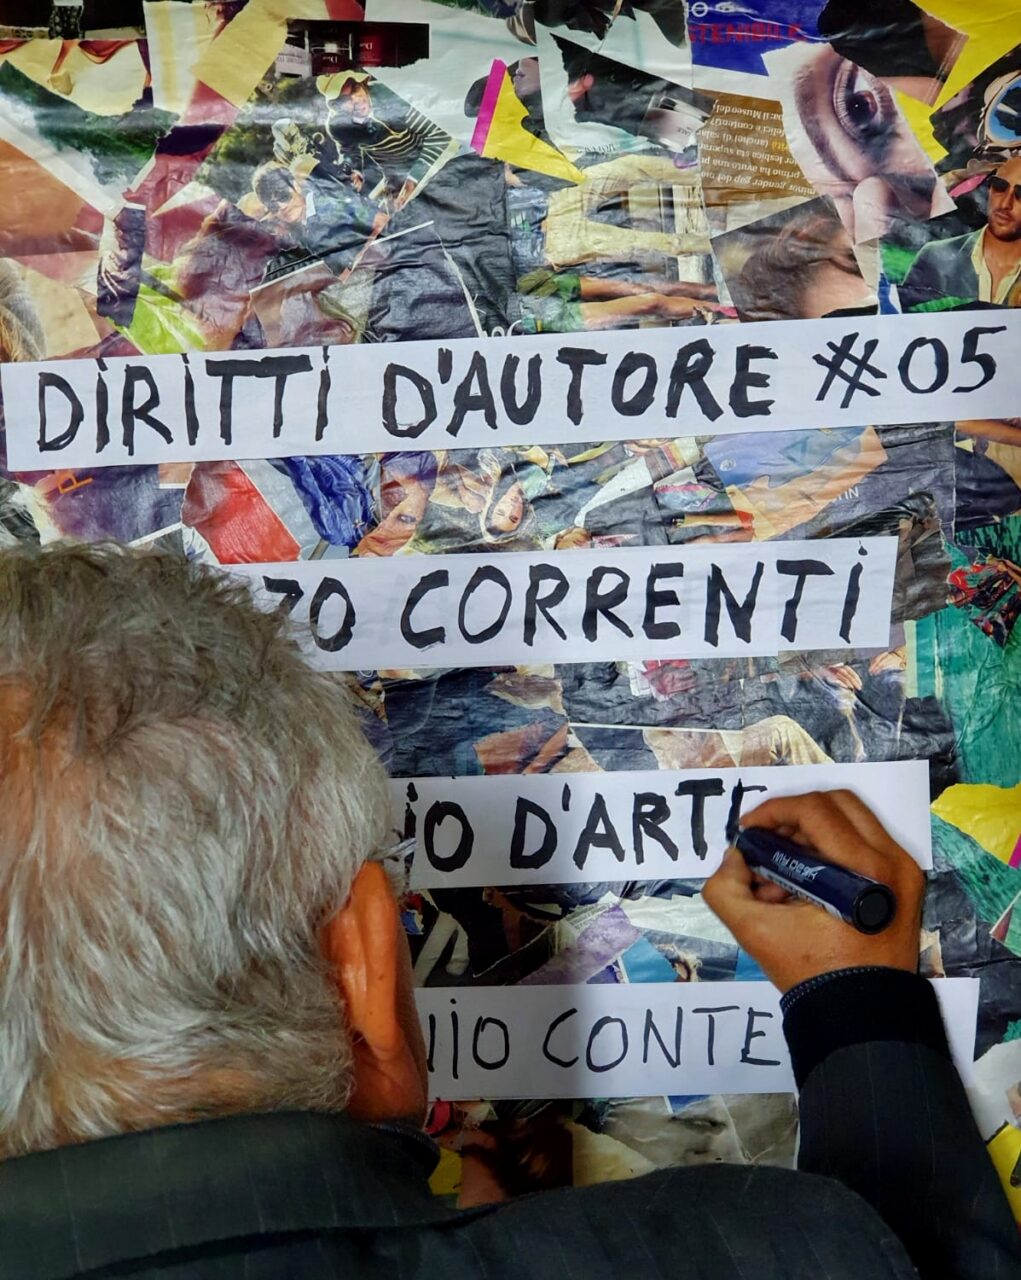 DIRITTI D'AUTORE #05
ZO CORRENTI
IO D'ARTE
IO CONTE